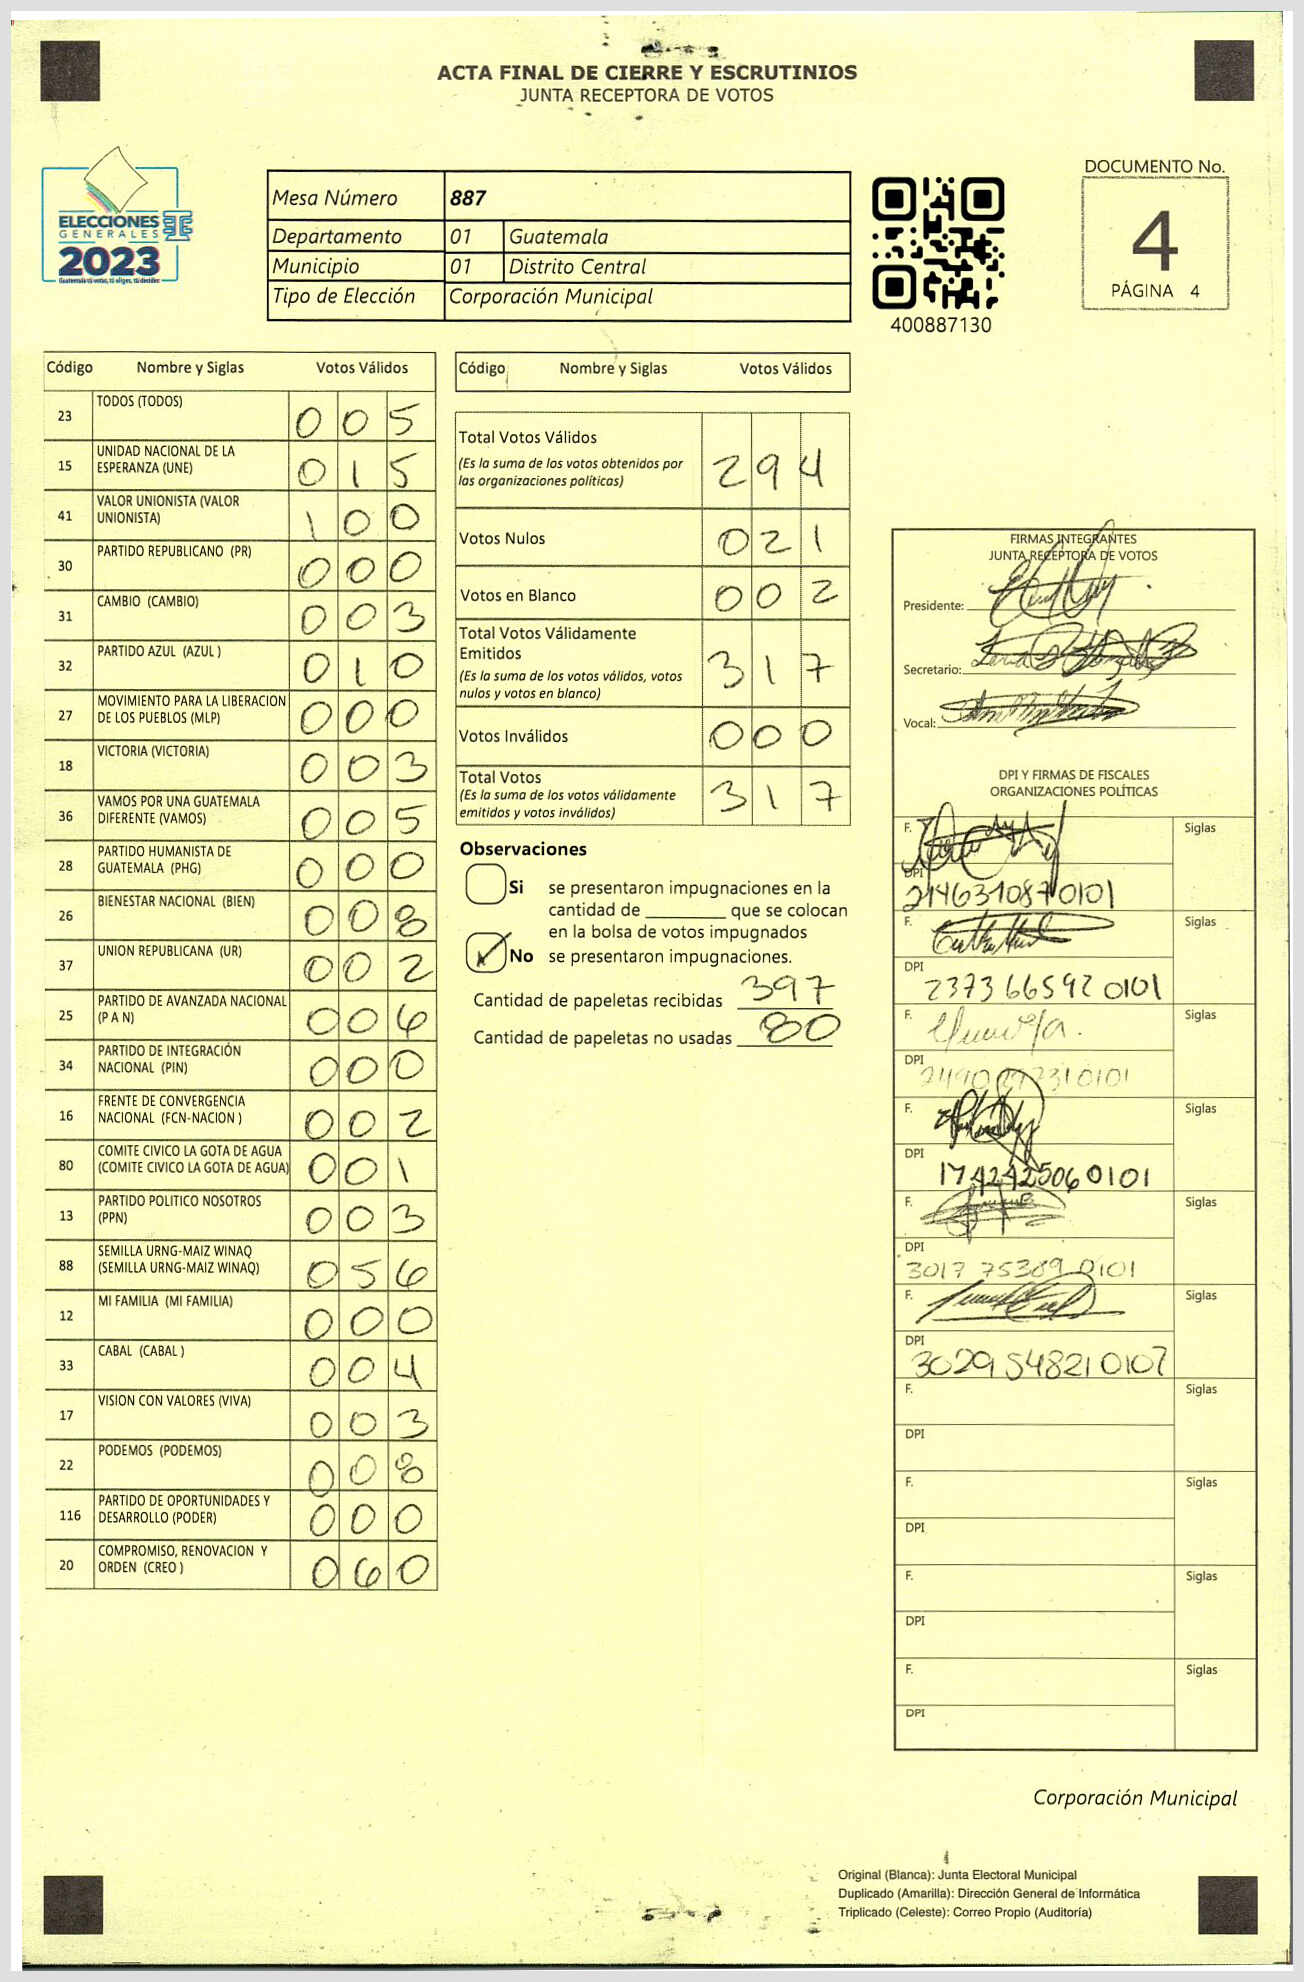 ACTA FINAL DE CIERRE Y ESCRUTINIOS
JUNTA RECEPTORA DE VOTOS
ELECCIONES
GENERALES
2023
Guatemala tú votas, tú eliges, tú decides
Mesa Número 887
Departamento 01 Guatemala
Municipio 01 Distrito Central
Tipo de Elección Corporación Municipal
400887130
DOCUMENTO No.
4
PÁGINA 4
Código Nombre y Siglas Votos Válidos
23 TODOS (TODOS) 0 0 5
15 UNIDAD NACIONAL DE LA
ESPERANZA (UNE) 0 1 5
41 VALOR UNIONISTA (VALOR
UNIONISTA) 1 0 0
30 PARTIDO REPUBLICANO (PR) 0 0 0
31 CAMBIO (CAMBIO) 0 0 3
32 PARTIDO AZUL (AZUL ) 0 1 0
27 MOVIMIENTO PARA LA LIBERACION
DE LOS PUEBLOS (MLP) 0 0 0
18 VICTORIA (VICTORIA) 0 0 3
36 VAMOS POR UNA GUATEMALA
DIFERENTE (VAMOS) 0 0 5
28 PARTIDO HUMANISTA DE
GUATEMALA (PHG) 0 0 0
26 BIENESTAR NACIONAL (BIEN) 0 0 8
37 UNION REPUBLICANA (UR) 0 0 2
25 PARTIDO DE AVANZADA NACIONAL
(P A N) 0 0 6
34 PARTIDO DE INTEGRACIÓN
NACIONAL (PIN) 0 0 0
16 FRENTE DE CONVERGENCIA
NACIONAL (FCN-NACION ) 0 0 2
80 COMITE CIVICO LA GOTA DE AGUA
(COMITE CIVICO LA GOTA DE AGUA) 0 0 1
13 PARTIDO POLITICO NOSOTROS
(PPN) 0 0 3
88 SEMILLA URNG-MAIZ WINAQ
(SEMILLA URNG-MAIZ WINAQ) 0 5 6
12 MI FAMILIA (MI FAMILIA) 0 0 0
33 CABAL (CABAL ) 0 0 4
17 VISION CON VALORES (VIVA) 0 0 3
22 PODEMOS (PODEMOS) 0 0 8
116 PARTIDO DE OPORTUNIDADES Y
DESARROLLO (PODER) 0 0 0
20 COMPROMISO, RENOVACION Y
ORDEN (CREO ) 0 6 0
Código Nombre y Siglas Votos Válidos
Total Votos Válidos
(Es la suma de los votos obtenidos por
las organizaciones políticas) 2 9 4
Votos Nulos 0 2 1
Votos en Blanco 0 0 2
Total Votos Válidamente
Emitidos
(Es la suma de los votos válidos, votos
nulos y votos en blanco) 3 1 7
Votos Inválidos 0 0 0
Total Votos
(Es la suma de los votos válidamente
emitidos y votos inválidos) 3 1 7
Observaciones
Si se presentaron impugnaciones en la
cantidad de ________ que se colocan
en la bolsa de votos impugnados
No se presentaron impugnaciones.
Cantidad de papeletas recibidas 397
Cantidad de papeletas no usadas 80
FIRMAS INTEGRANTES
JUNTA RECEPTORA DE VOTOS
Presidente:
Secretario:
Vocal:
DPI Y FIRMAS DE FISCALES
ORGANIZACIONES POLÍTICAS
F. Siglas
DPI
2146310870101
F. Siglas
DPI
2373 66592 0101
F. Siglas
DPI
F. Siglas
DPI
1742425060101
F. Siglas
DPI
3017 75389 0101
F. Siglas
DPI
3029 54821 0107
F. Siglas
DPI
F. Siglas
DPI
F. Siglas
DPI
F. Siglas
DPI
Corporación Municipal
Original (Blanca): Junta Electoral Municipal
Duplicado (Amarilla): Dirección General de Informática
Triplicado (Celeste): Correo Propio (Auditoría)